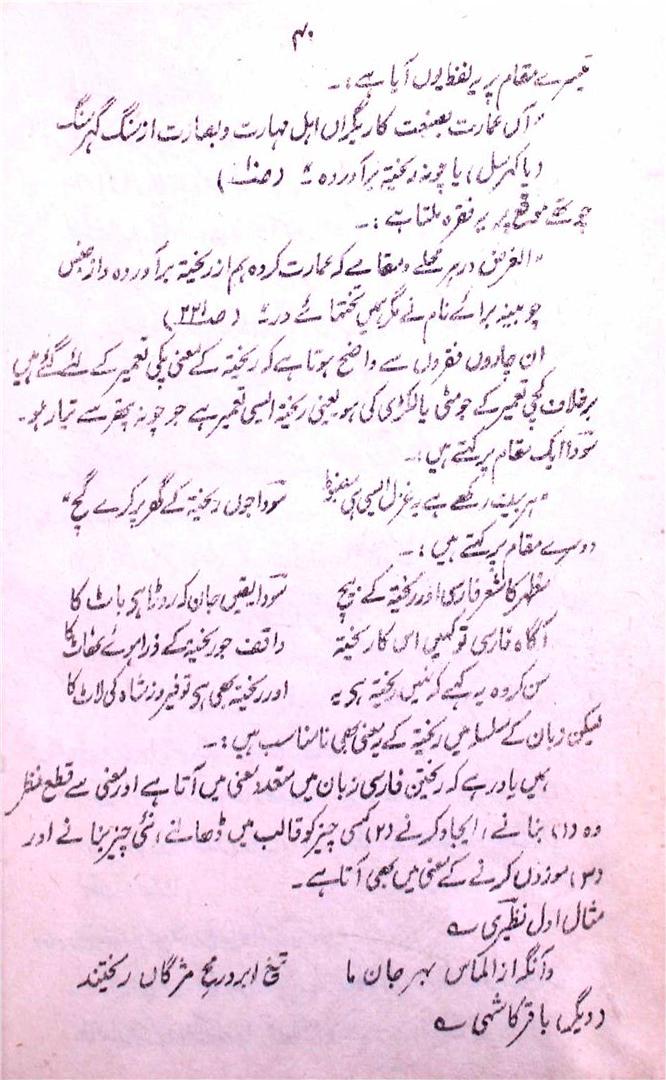 ۴۰
تیسرے مقام پر یہ لفظ یوں آیا ہے:۔
"آں عمارت بصنعت کاریگراں اہل مہارت و بصارت از سنگ گہر سنگ
(یا کہرسل) یا چونہ ریختہ برآوردہ" (صفحہ)
چوتھے موقع پر یہ فقرہ ملتا ہے:۔
"الغرض در ہر محلے و مقامے کہ عمارت کردہ ہم از ریختہ برآوردہ و از جنس
چوبینہ برائے نام نے مگر ہمیں تختہائے در" (صفحہ ۲۲۱)
ان چاروں فقروں سے واضح ہوتا ہے کہ ریختہ کے معنی پکی تعمیر کے لئے گئے ہیں
برخلاف کچی تعمیر کے جو مٹی یا لکڑی کی ہو یعنی ریختہ ایسی تعمیر ہے جو چونہ پتھر سے تیار ہو۔
سودا ایک مقام پر کہتے ہیں:۔
"ہر بیت رکھے ہے یہ غزل ایسی ہی مضبوط سودا جوں ریختہ کے گھر پر کرے گچ"
دوسرے مقام پر کہتے ہیں:۔
مظہر کا شعر فارسی اور ریختہ کے بیچ سودا یقین جان کہ روڑا ہی باٹ کا
آگاہ فارسی تو کہیں اس کا ریختہ واقف جو ریختہ کے ذرا ہوئے ٹھاٹ کا
سن کر وہ یہ کہے کہ نہیں ریختہ ہی یہ اور ریختہ بھی ہی تو فیروز شاہ کی لاٹ کا
لیکن زبان کے سلسلہ میں ریختہ کے یہ معنی بھی نامناسب ہیں:۔
ہمیں یاد رہے کہ ریختن فارسی زبان میں متعدد معنی میں آتا ہے اور معنی سے قطع نظر
وہ (۱) بنانے، ایجاد کرنے (۲) کسی چیز کو قالب میں ڈھالنے، نئی چیز بنانے اور
(۳) موزوں کرنے کے معنی میں بھی آتا ہے۔
مثال اول نظیری ؎
وانگہ از الماس بہر جان ما تیغ ابرو رمح مژگاں ریختند
(دیگر) باقر کاشی ؎